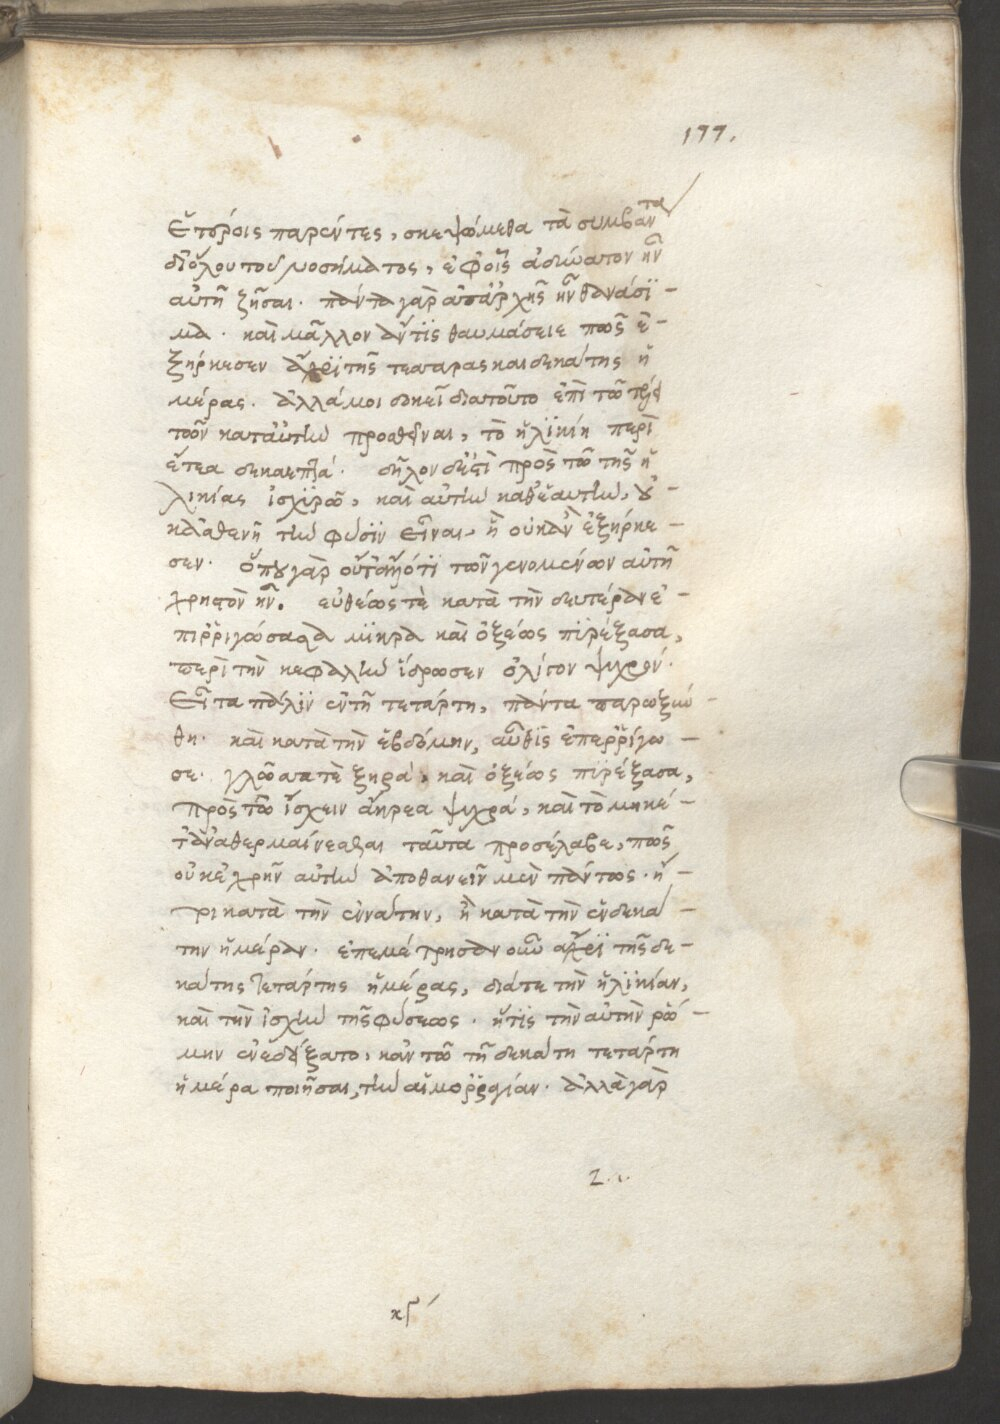 177.
ἑτέροις παρέντες, σκεψόμεθα τὰ συμβάντα
διόλου τοῦ νοσήματος, ἐφ' οἷς ἀδύνατον ἦν
αὐτῇ ζῆσαι. πάντα γὰρ ἀπ' ἀρχῆς ἦν θανάσϊ -
μα. καὶ μᾶλλον ἄν τϊς θαυμάσειε πῶς ἐ -
ξήρκεσεν ἄχρϊ τῆς τεσσαρασκαιδεκάτης ἡ
μέρας. ἀλλά μοι δοκεῖ διατοῦτο ἐπὶ τῶ
κατ' αὐτὴν προσθεῖναι, τὸ ἡλϊκίη περὶ
ἔτεα δεκαεπτά. δῆλον δέ ὅτι πρὸς τῶ τῆς ἡ
λικίας ἰσχϋρῶ, καὶ αὐτὴν καθ' ἑαυτὴν, οὐ -
κ ἀσθενῆ τὴν φύσϊν εἶναι, ἢ οὐκ ἂν ἐξήρκε -
σεν. ὅπου γὰρ τῶν γενομένων αὐτῇ
χρηστὸν ἦν. εὐθέως τὲ κατὰ τὴν δευτέραν ἐ -
πιρριγώσασα μϊκρὰ καὶ ὀξέως πϋρέξασα,
περὶ τὴν κεφαλὴν ἵδρωσεν ὀλίγον ψυχρόν.
Εἶτα πάλϊν ἐν τῇ τετάρτη, πάντα παρωξύν -
θη. καὶ κατὰ τὴν ἑβδόμην, αὖθϊς ἐπερρίγω -
σε. γλῶσσα τὲ ξηρά, καὶ ὀξέως πϋρέξασα,
πρὸς τῶ ἴσχειν ἄκρεα ψυχρά, καὶ τὸ μηκέ -
τ' ἀναθερμαίνεσθαι ταῦτα προσέλαβε, πῶς
οὐκ ἐχρῆν αὐτὴν ἀποθανεῖν μὲν πάντως. ἤ -
τοι κατὰ τὴν ἐννάτην, ἢ κατὰ τὴν ἑνδεκά -
την ἡμέραν. ἐπεμέτρησαν οὖν ἄχρϊ τῆς δε -
κάτης τετάρτης ἡμέρας, διά τε τὴν ἡλϊκίαν,
καὶ τὴν ἰσχὺν τῆς φύσεως. ἥτϊς τὴν αὐτὴν ῥώ -
μην ἐνεδείξατο, κἀν τῶ τῇ δεκάτη τετάρτη
ἡμέρα ποιῆσαι, τὴν αἱμορραγίαν. ἀλλὰ γὰρ